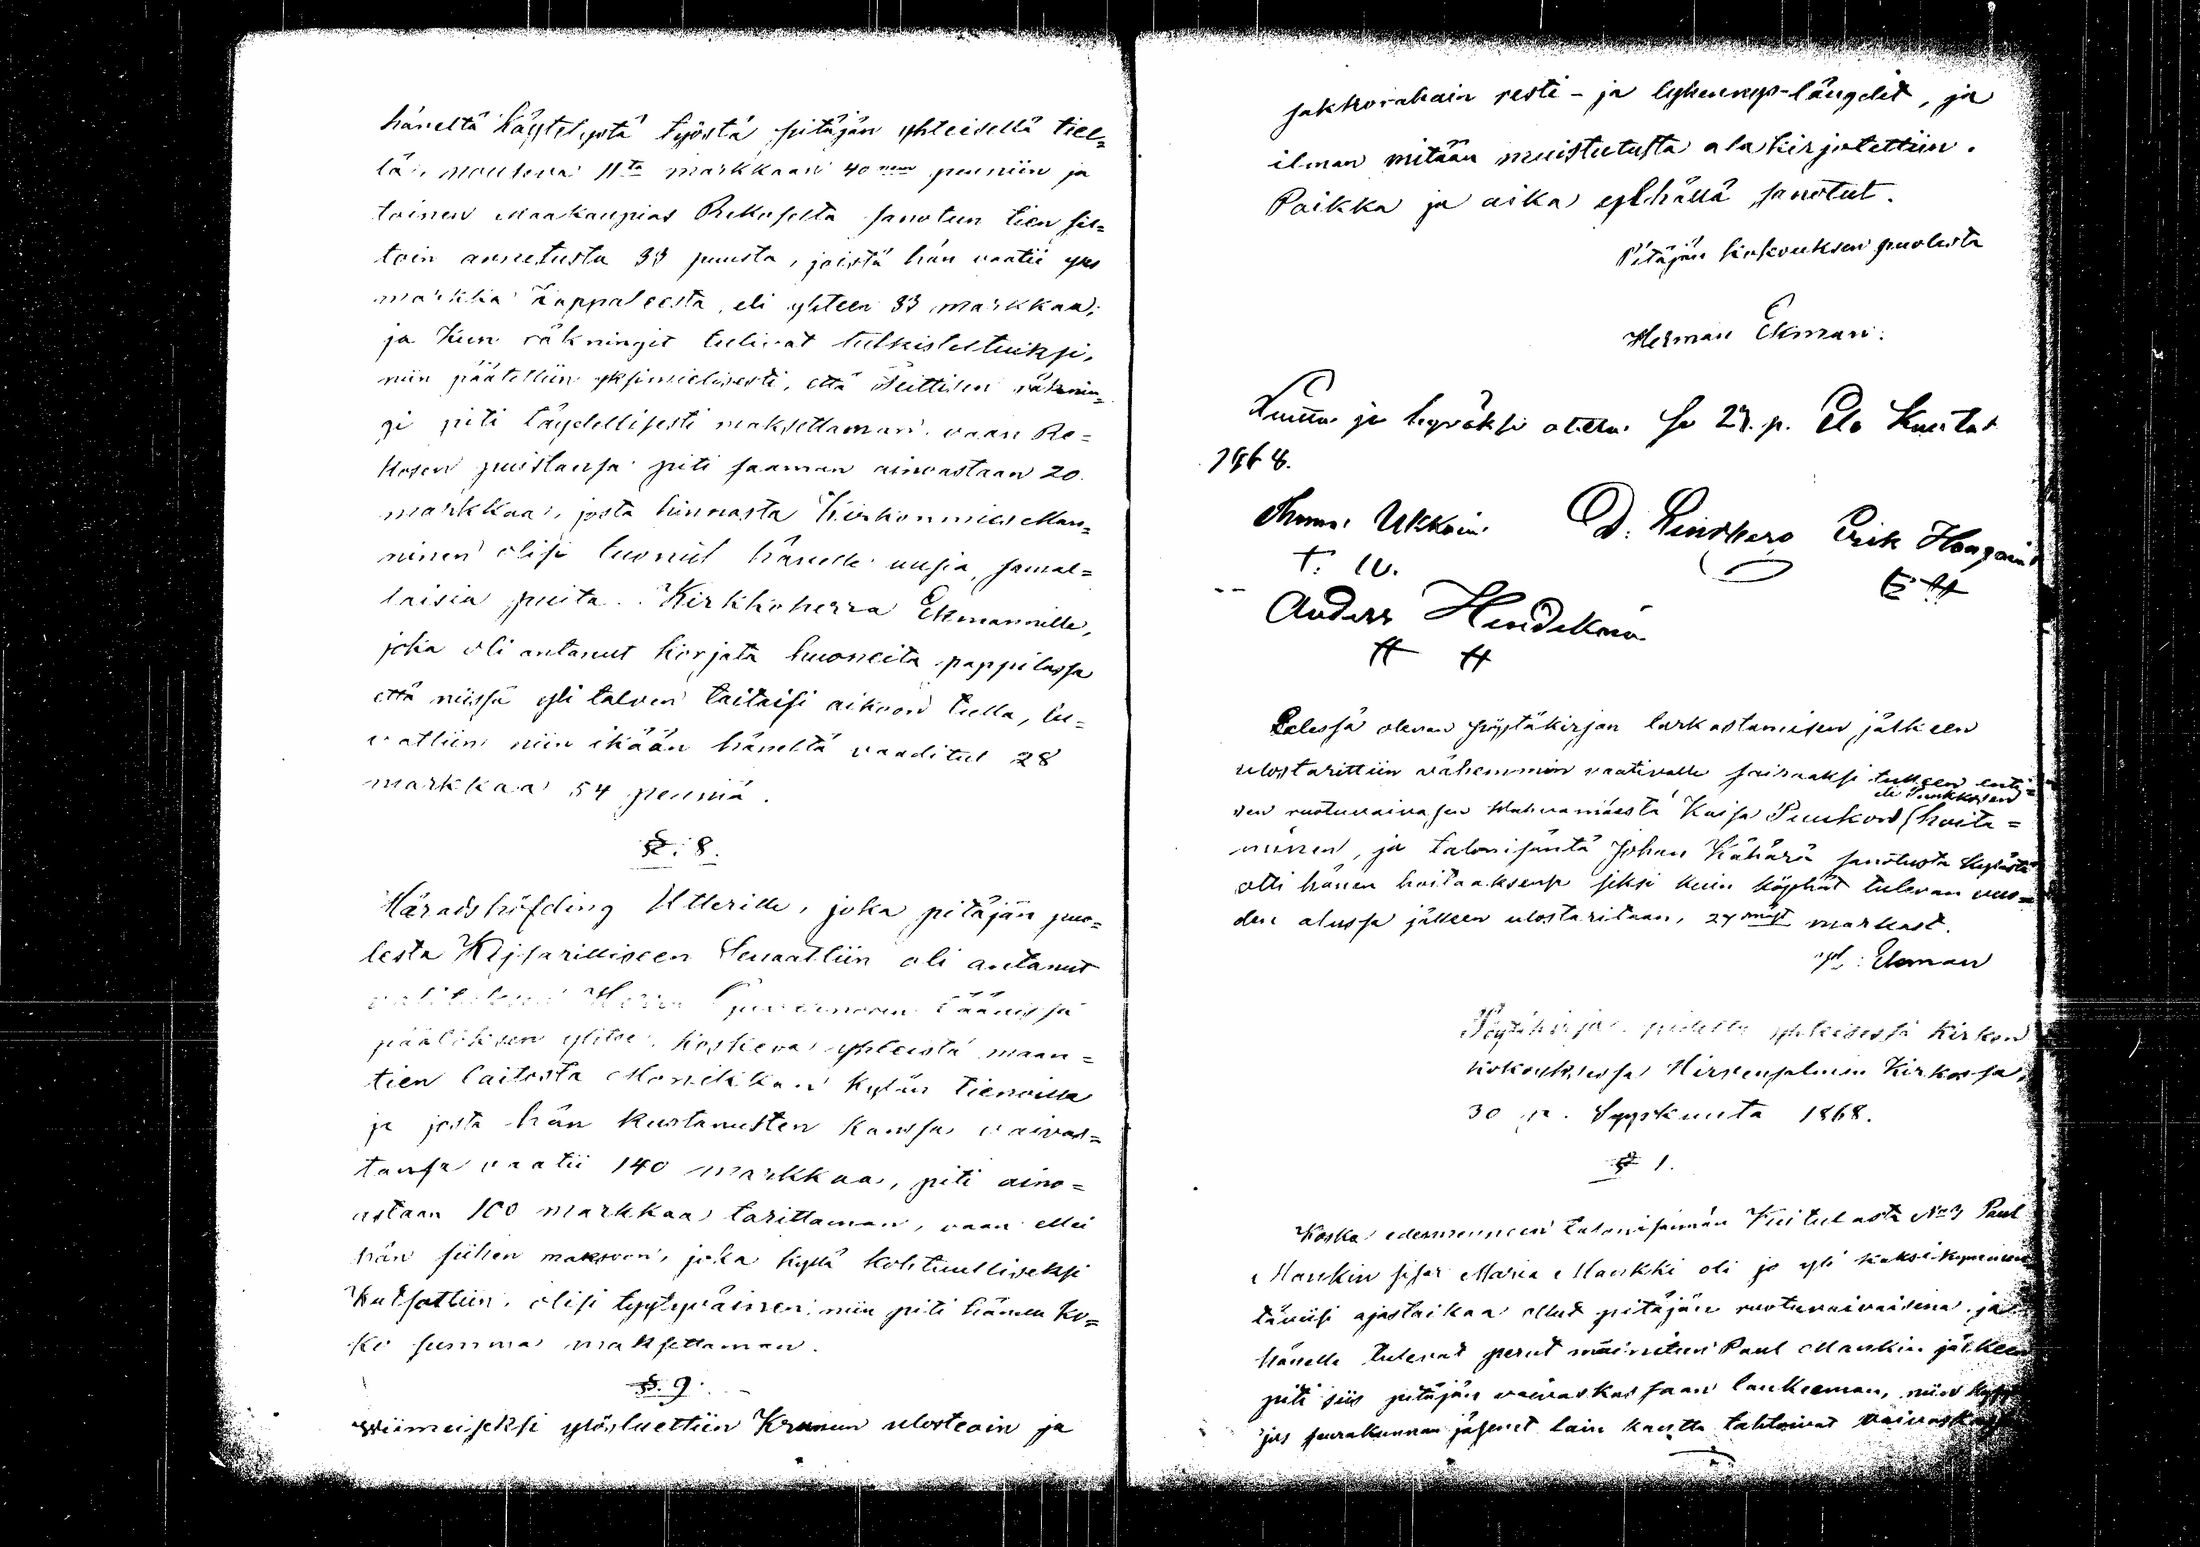 häneltä käytetystä työstä pitäjän yhteisellä tiel=
lä, nouseva 11ta markkaan 40 penniin ja
toinen Maakaupias Rekoselta sanotun tien sil=
toin annetusta 33 puusta, joista hän vaatii yxi
markka kappaleesta, eli yhteen 33 markkaa;
ja kun räkningit tulivat tutkisteltuiksi,
niin päätettiin yksimielisesti, että räknin=
gi piti täydellisesti maksettaman, vaan Re=
kosen puistansa piti saaman ainoastaan 20
markkaa, josta hinnasta Kirkonmies Man=
ninen olisi luonut hänelle uusia, samal=
laisia puita. Kirkkoherra Ekmannille,
joka oli antanut korjata huoneita pappilassa
että niissä yli talven taitaisi aikoon tulla, lu=
vattiin niin ikään häneltä vaaditut 28
markkaa 54 penniä.
§. 8.
Häradshöfding Utterille, joka pitäjän puo=
lesta Kejsarilliseen Senaattiin oli antanut
Herra Läänissä
päätöksen ylitse, koskeva yhteistä maan=
tien laitosta kylän tienoilla
ja josta hän kustanusten kanssa vaivas=
tansa vaatii 140 markkaa, piti aino=
astaan 100 markkaa tarittaman, vaan ellei
hän siihen maksoon, joka kyllä kohtuulliseksi
katsottiin, olisi tyytyväinen, niin piti hänen ko=
ko summa maksettaman.
§. 9.
Wiimeiseksi ylösluettiin Krunun ulosteoin ja
jakkorahain resti- ja lyhennys-längdit, ja
ilman mitään muistutusta alakirjotettiin.
Paikka ja aika ylhällä sanotut.
Pitäjän kokouksen puolesta
Herman Ekman.
Luettu ja hyväksi otettu se 27. p. Elo Kuuta
1868.
Ukkoin D. Lindberg Erik
T. U. E H
Anders
H H
olevan pöytäkirjan tarkastamisen jälkeen
ulostarittiin vähemmin vaativalle sairaaksi tulleen enti=
sen ruotuvaivasen Kaisa Puukon eli Puukkosen hoita=
minen, ja talonisäntä Johan Kähärä sanotusta kylästä
otti hänen hoitaaksensa siksi kuin köyhät tulevan vuo=
den alussa jälleen ulostaritaan, markast.
Ekman
Pöytäkirja, pidetty yhteisessä kirkon
kokouksessa Hirvensalmen Kirkossa,
30 p. Syyskuuta 1868.
§ 1.
Koska edesmenneen talonisännän Kuitulasta No 3 Paul
Mankin sisar Maria Mankki oli jo yli kaksikymmen
täviisi ajastaikaa ollut pitäjän ruotuvaivaisena, ja
hänelle tulevat perut mainitun Paul Mankin jälkeen
piti siis pitäjän vaivaskassaan lankeeman, niin
jos seurakunnan jäsenet lain kautta tahtoivat